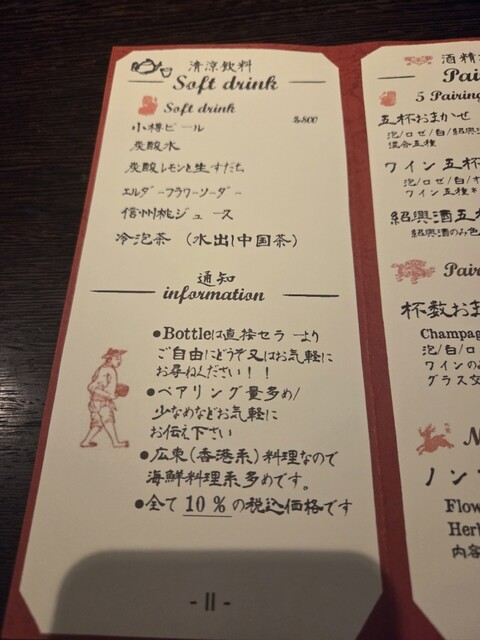 清涼飲料
Soft drink
Soft drink
各800
小樽ビール
炭酸水
炭酸レモンと生すだち
エルダーフラワーソーダー
信州桃ジュース
冷泡茶 (水出し中国茶)
通知
information
●Bottleは直接セラーより
ご自由にどうぞ又はお気軽に
お尋ねください!!
●ペアリング量多め/
少なめなどお気軽に
お伝え下さい
●広東(香港系)料理なので
海鮮料理系多めです。
●全て10%の税込価格です
- 11 -
酒精
Pai
5 Pairing
五杯おまかせ
泡/ロゼ/白/紹興
混合五種
ワイン五杯
泡/ロゼ/白/
ワイン五種
紹興酒五
紹興酒のみ
Pair
杯数おま
Champag
泡/白/ロ
ワインのみ
グラス交
N
ノン
Flow
Herb
内容